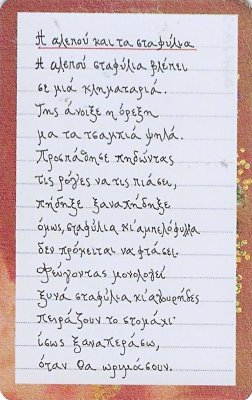 Η αλεπού και τα σταφύλια
Η αλεπού σταφύλια βλέπει
σε μιά κληματαριά.
Της άνοιξε η όρεξη
μα τα τσαμπιά ψηλά.
Προσπάθησε πηδώντας
τις ρόγες να τις πιάσει,
πήδηξε ξαναπήδηξε
όμως, σταφύλια κι αμπελόφυλλα
δεν πρόκειται να φτάσει.
Φεύγοντας μονολογεί
ξυνα σταφύλια κι αγουρήδες
πειράζουν το στομάχι·
ίσως ξαναπεράσω,
όταν θα ωριμάσουν.